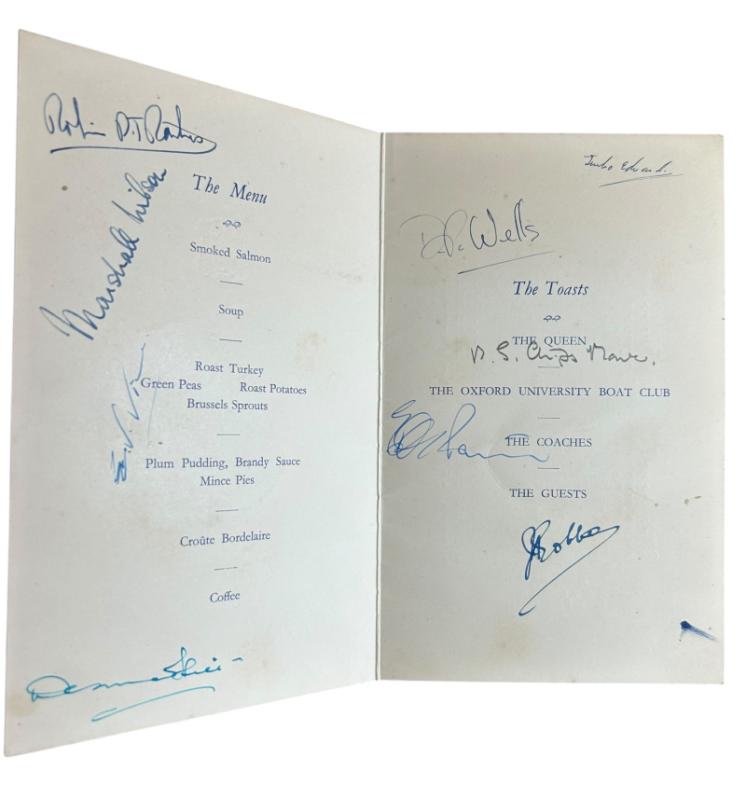 The Menu
Smoked Salmon
Soup
Roast Turkey
Green Peas Roast Potatoes
Brussels Sprouts
Plum Pudding, Brandy Sauce
Mince Pies
Croûte Bordelaire
Coffee
Marshall
Robin
Wells
The Toasts
THE QUEEN
THE OXFORD UNIVERSITY BOAT CLUB
THE COACHES
THE GUESTS